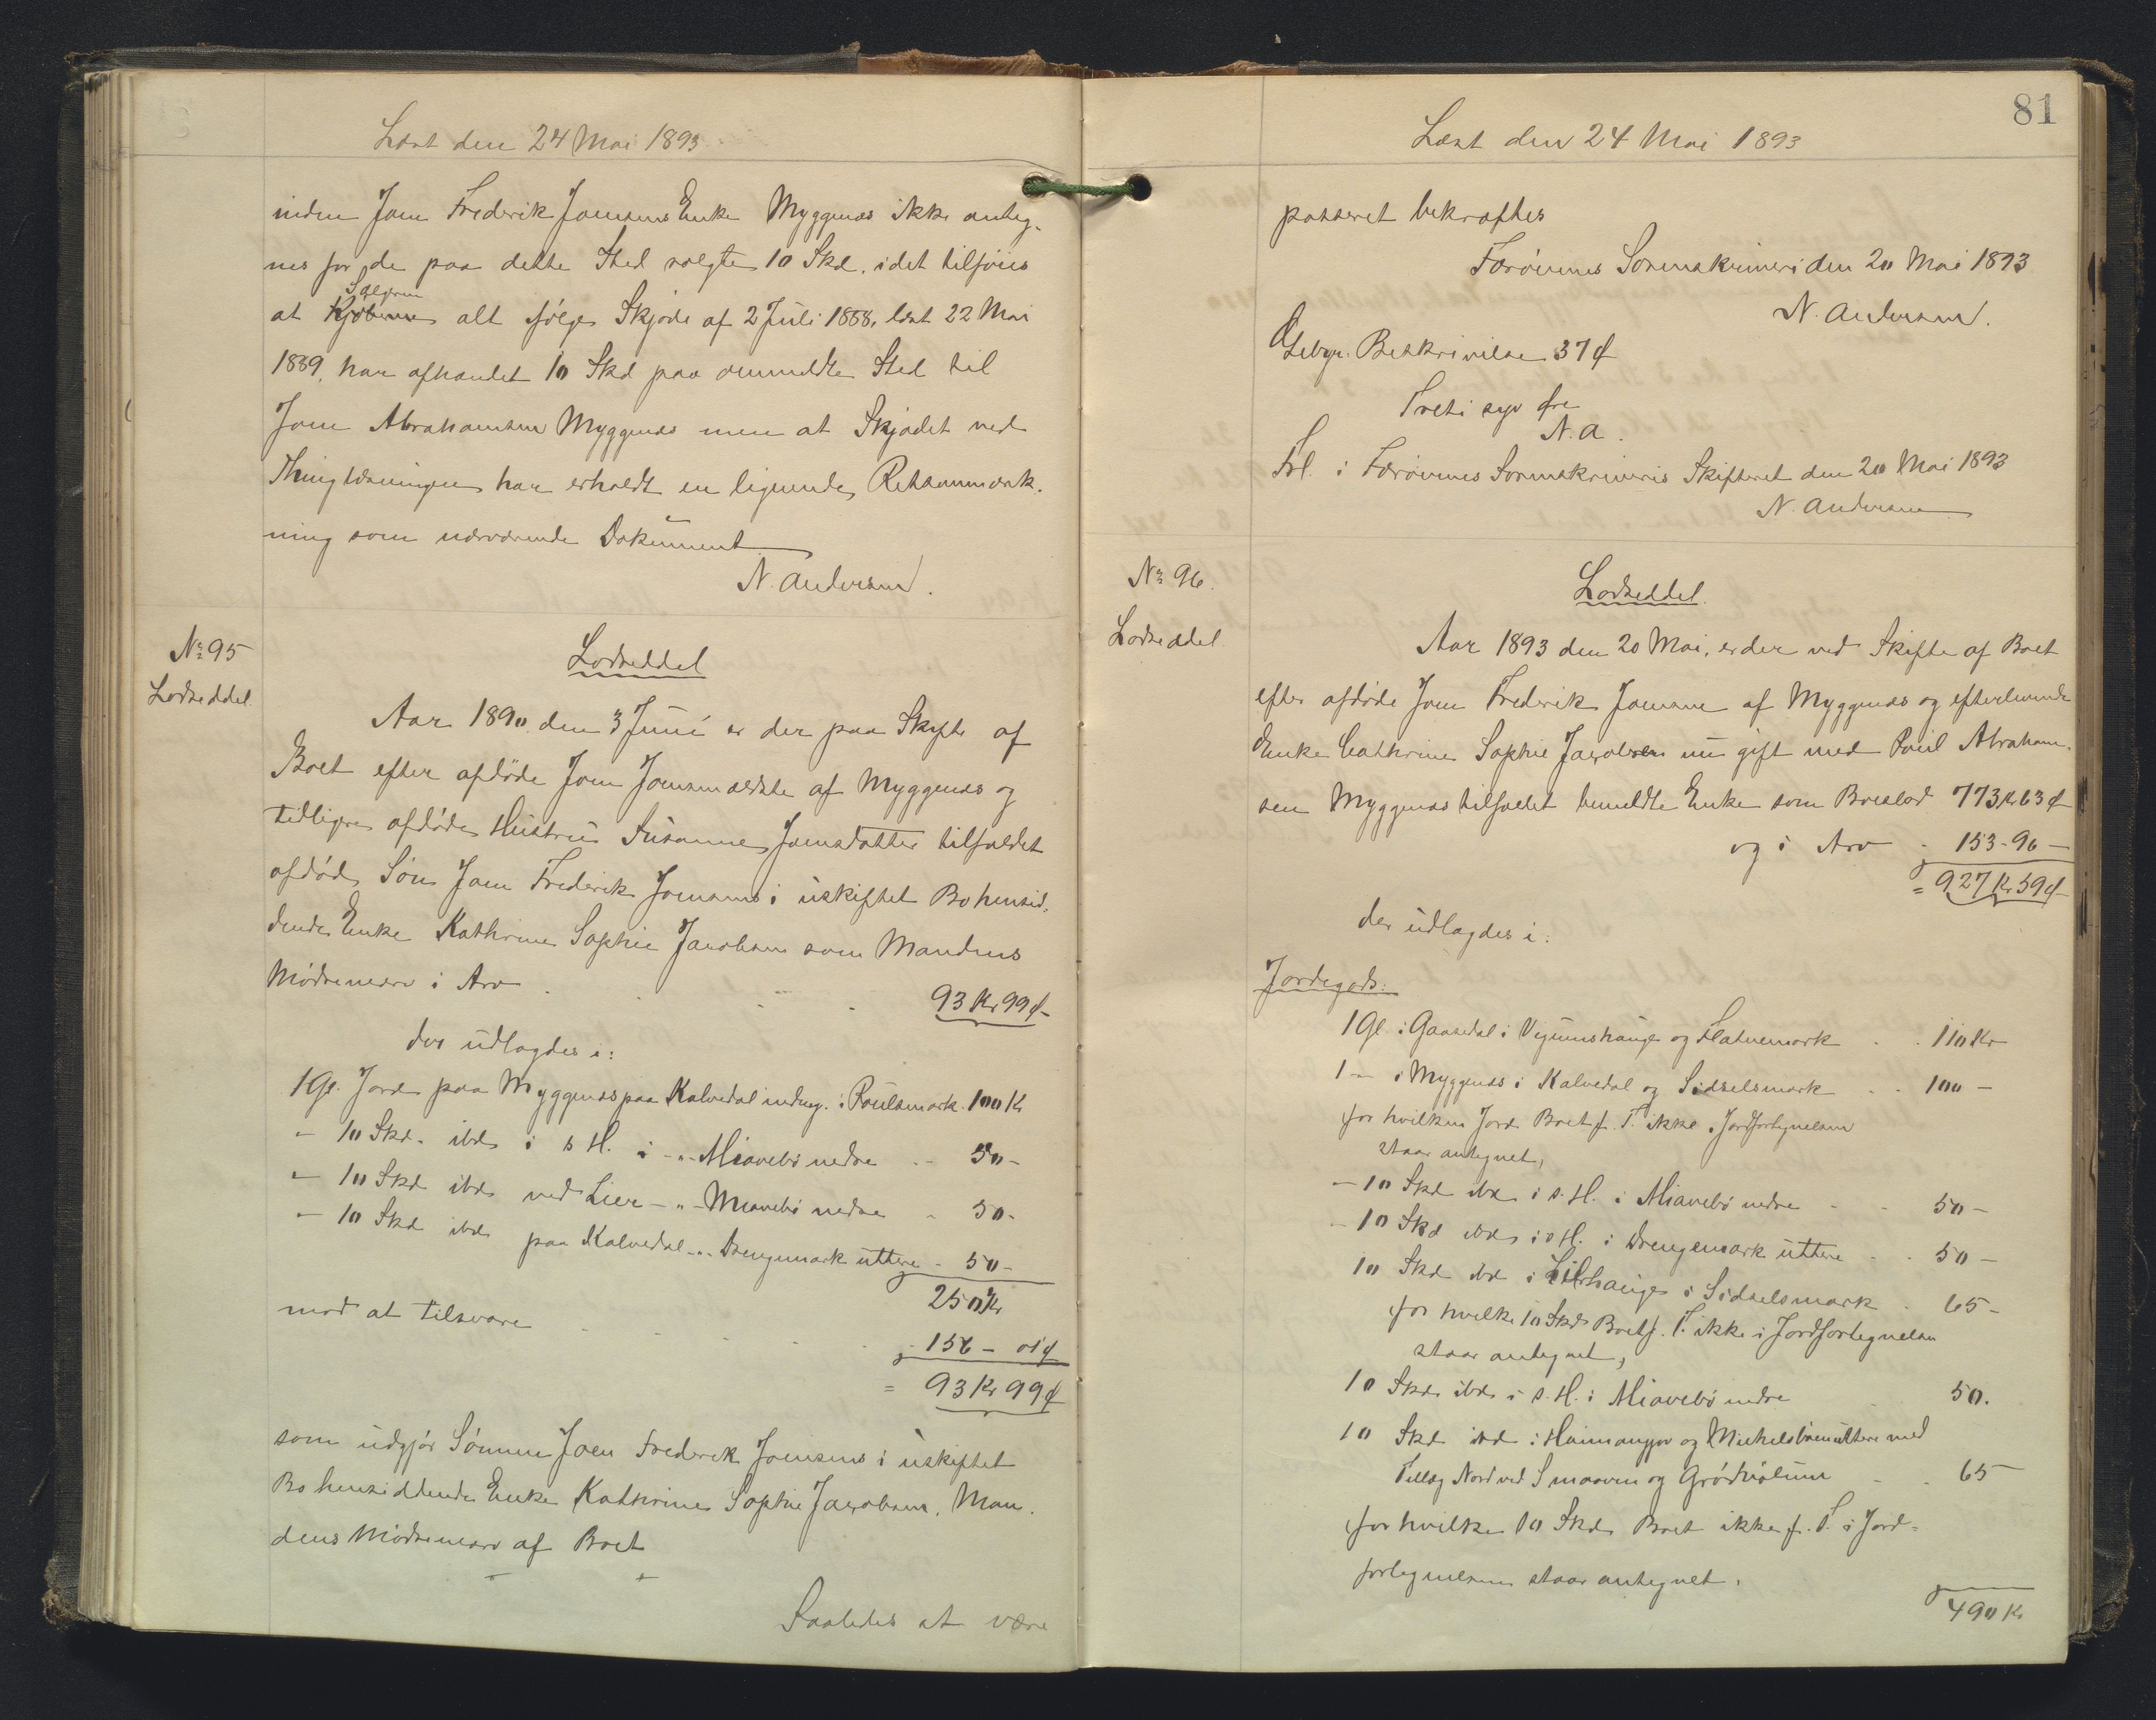 Læst den 24 Mai 1893
inden Joen Frederik Joensens Enke Myggenæs ikke anteg-
nes for de paa dette Sted solgte 10 Skd. idet tilføies
Sælgeren
at Kjøberne alt ifølge Skjøde af 2 Juli 1888, læst 22 Mai
1889. har afhændet 10 Skd paa ommeldte Sted til
Joen Abrahamsen Myggenæs men at Skjødet ved
Thinglæsningen har erholdt en lignende Retsanmærk-
ning som nærværende Dokument
N. Andersen.
No 95
Lodseddel
Lodseddel
Aar 1890 den 3 Juni er der paa Skifte af
Boet efter afdøde Joen Joensen ældste af Myggenæs og
tidligere afdøde Hustru Susanne Joensdatter tilfaldet
afdøde Søn Joen Frederik Joensens i uskiftet Bo hensid-
dende Enke Kathrine Sophie Jacobsen som Mandens
Mødrenearv i Arv 93 Kr 99 ø
der udlagdes i:
1 Gl. Jord paa Myggenæs paa Kalvedal indreg. i Poulsmark 100 Kr
" 10 Skd. ibd. i s H. i -"- Miavebø nedre 50 -
" 10 Skd ibd. ved Lier -"- Miavebø nedre - 50 -
" 10 Skd ibd. paa Kalvedal -"- Drengemark uttere - 50 -
250 Kr
mod at tilsvare
156 - 01 ø
= 93 Kr 99 ø
som udgjør Sønnen Joen Frederik Joensens i uskiftet
Bo hensiddende Enke Kathrine Sophie Jacobsen, Man-
dens Mødrenearv af Boet
Saaledes at være
81
Læst den 24 Mai 1893
passeret bekræftes
Færøernes Sorenskriveri den 20 Mai 1893
N. Andersen.
Gebyr: Beskrivelse 37 ø
Treti syv Øre
N. A.
Frl. i Færøernes Sorenskriveris Skifteret den 20 Mai 1893
N. Andersen
No 96.
Lodseddel
Lodseddel.
Aar 1893 den 20 Mai, er der ved Skifte af Boet
efter afdøde Joen Frederik Joensen af Myggenæs og efterlevende
Enke Cathrine Sophie Jacobsen nu gift med Poul Abraham-
sen Myggenæs tilfaldet bemeldte Enke som Boeslod 773 Kr 63 ø
og i Arv - 153 - 96 -
= 927 Kr 59 ø
der udlagdes i:
Jordegods:
1 Gl. i Gaasedal i Vigumshauge og Flatnemark 110 Kr
1 - i Myggenæs i Kalvedal og Sidselsmark 100 -
for hvilken Jord Boet f. T. ikke i Jordfortegnelsen
staar antegnet,
- 10 Skd ibd i s. H. i Miavebø nedre 50 -
- 10 Skd ibd. i s H. i Drengemark uttere 50 -
10 Skd ibd i Lithauge i Sidselsmark 65 -
for hvilke 10 Skd Boet f. T. ikke i Jordfortegnelsen
staar antegnet,
10 Skd. ibd. i s. H. i Miavebø nedre 50.
10 Skd ibd i Haimangjov og Mikkelsbøen uttere med
Tillæg Nord ved Smaaven og 65
for hvilke 10 Skd. Boet ikke f. T. i Jord-
fortegnelsen staar antegnet.
490 Kr